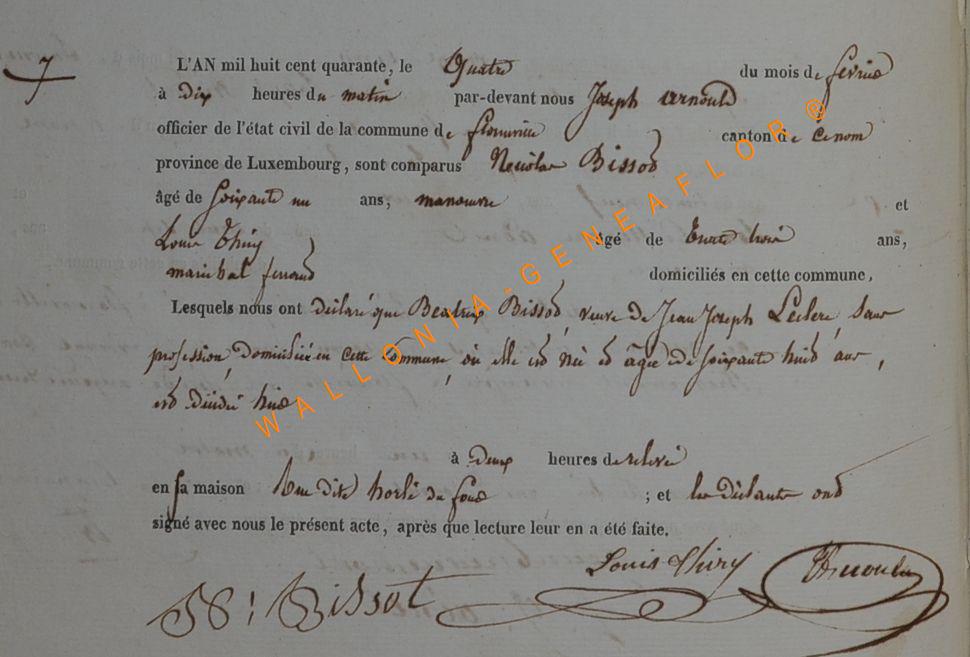 7
L'AN mil huit cent quarante, le Quatre du mois de février
à Dix heures du matin par-devant nous Joseph Arnould
officier de l'état civil de la commune de florenville canton de
province de Luxembourg, sont comparus Nicolas Bissot
âgé de soixante un ans, manoeuvre et
Louis Thiry âgé de trente trois ans,
marechal ferrand domiciliés en cette commune,
Lesquels nous ont déclaré que Beatrix Bissot, veuve de Jean Joseph Leclere, sans
profession, domiciliée en cette Commune, où elle est née et âgée de soixante huit ans,
est décédée hier
à deux heures de relevé
en sa maison Rue dite ; et les déclarants ont
signé avec nous le présent acte, après que lecture leur en a été faite.
Louis Thiry Arnould
N: Bissot
WALLONIA-GENEAFLOR®